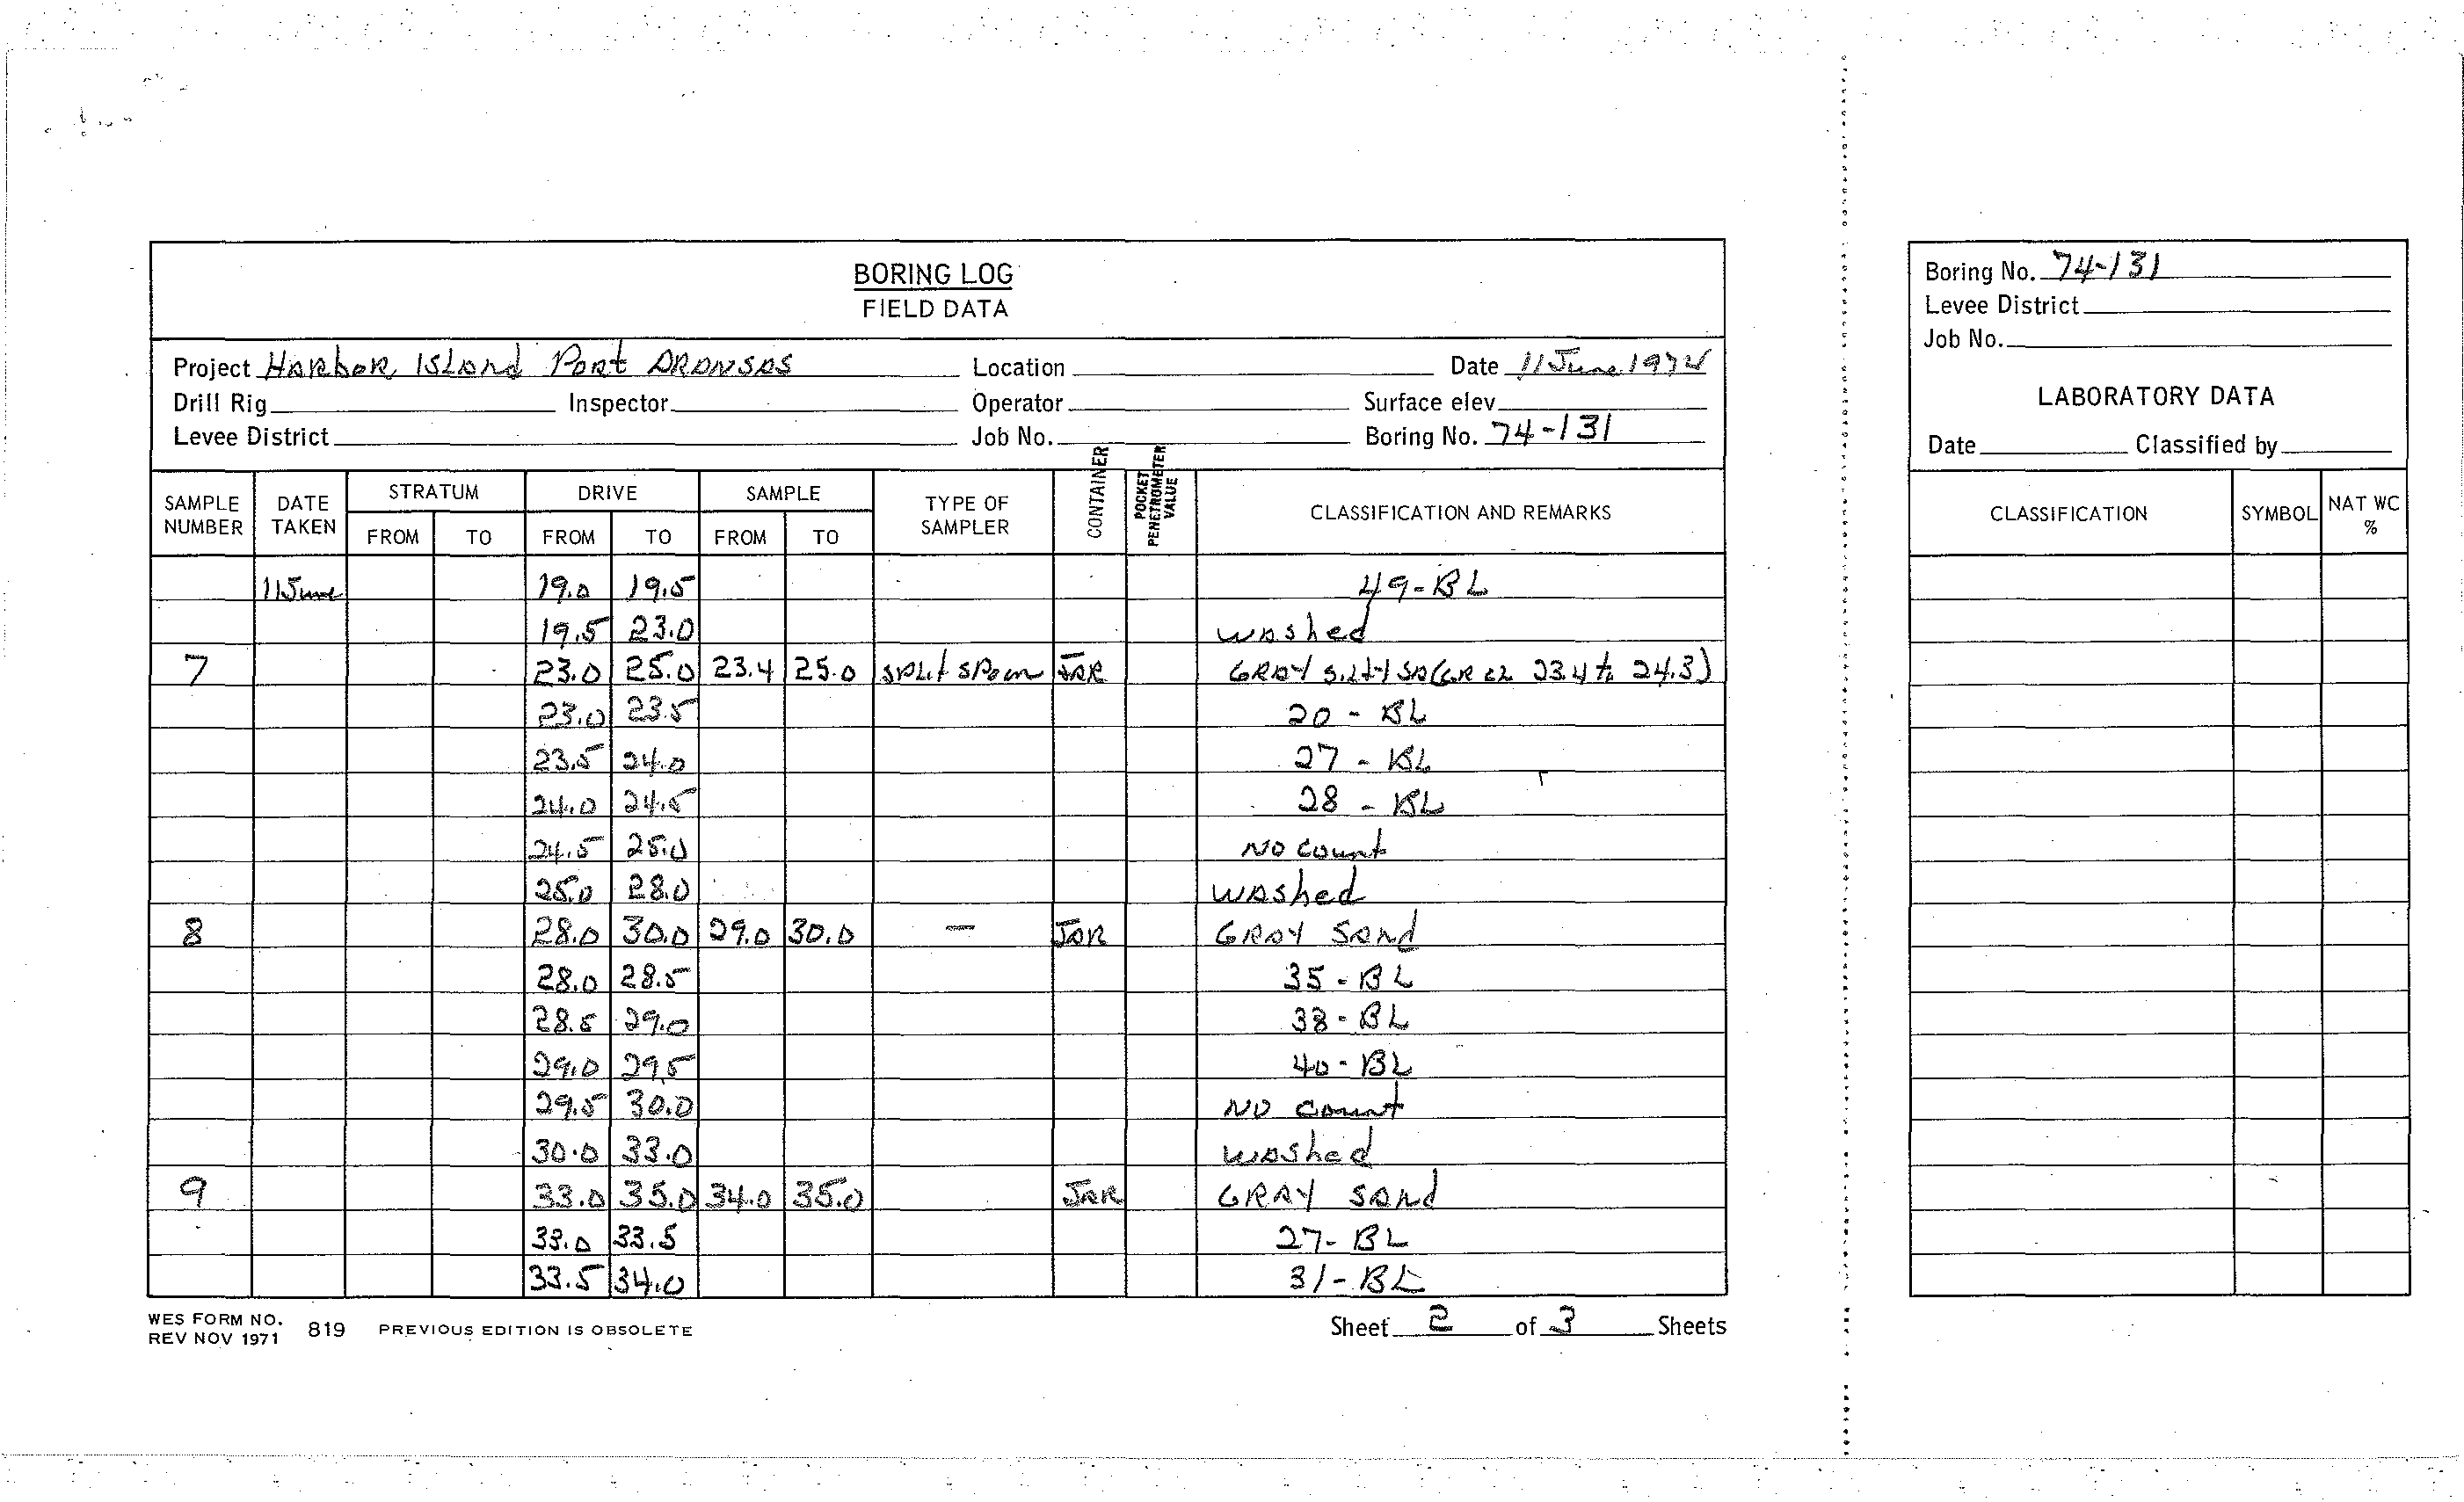 BORING LOG
FIELD DATA
Project Harbor Island Port Aransas Location Date 11 June 1974
Drill Rig Inspector Operator Surface elev.
Levee District Job No. Boring No. 74-131
SAMPLE NUMBER DATE TAKEN STRATUM FROM TO DRIVE FROM TO SAMPLE FROM TO TYPE OF SAMPLER CONTAINER POCKET PENETROMETER VALUE CLASSIFICATION AND REMARKS
11 June 19.0 19.5 49-BL
19.5 23.0 washed
7 23.0 25.0 23.4 25.0 split spoon JAR GRAY silty SA (GR CL 23.4 to 24.3)
23.0 23.5 20 - BL
23.5 24.0 27 - BL
24.0 24.5 28 - BL
24.5 25.0 NO count
25.0 28.0 washed
8 28.0 30.0 29.0 30.0 — JAR GRAY SAnd
28.0 28.5 35 - BL
28.5 29.0 38 - BL
29.0 29.5 40 - BL
29.5 30.0 NO count
30.0 33.0 washed
9 33.0 35.0 34.0 35.0 JAR GRAY SAnd
33.0 33.5 27 - BL
33.5 34.0 31 - BL
WES FORM NO. 819 PREVIOUS EDITION IS OBSOLETE
REV NOV 1971
Sheet 2 of 3 Sheets
Boring No. 74-131
Levee District
Job No.
LABORATORY DATA
Date Classified by
CLASSIFICATION SYMBOL NAT WC %